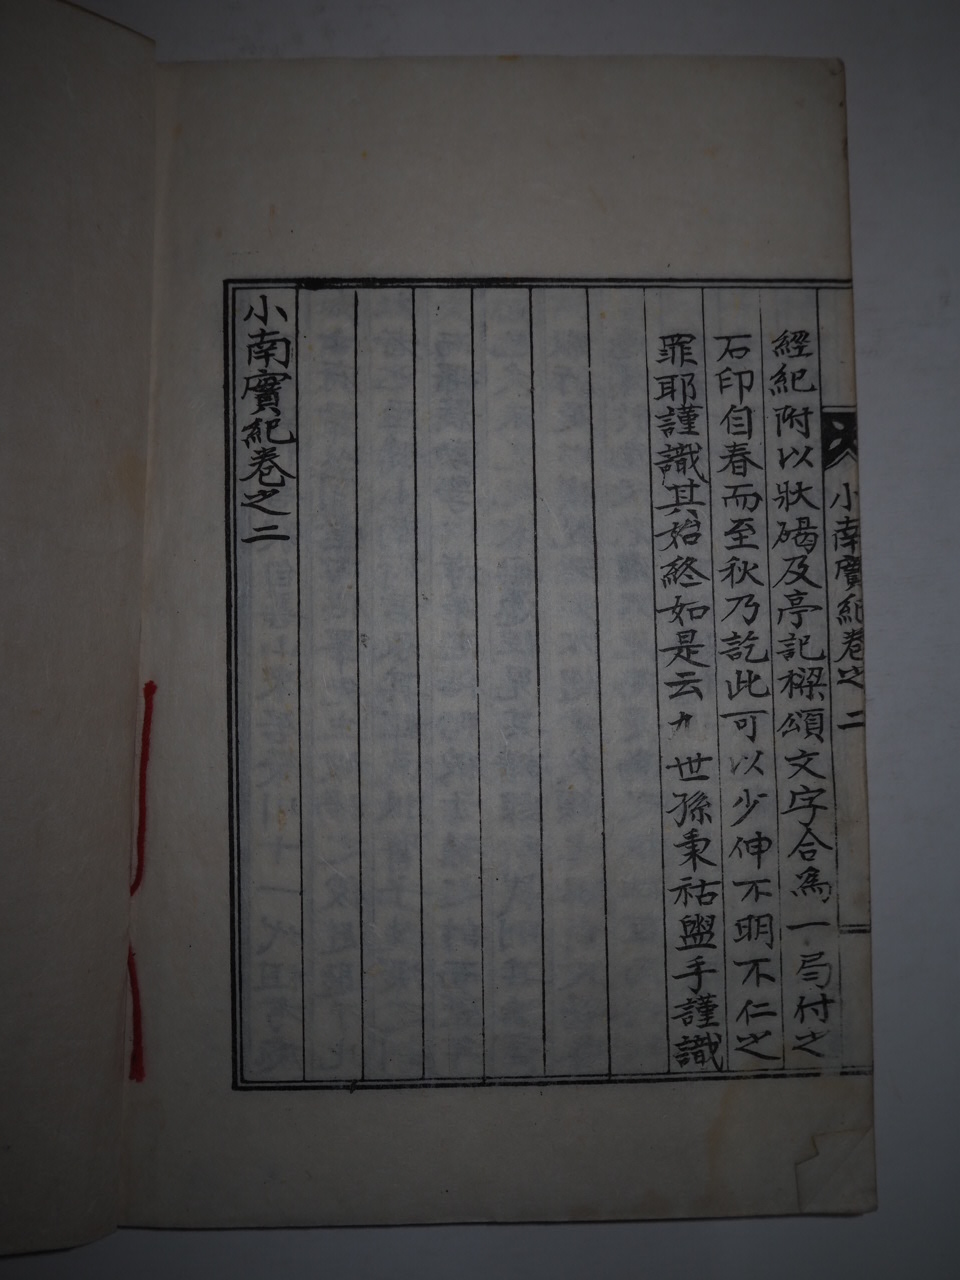 小南實紀卷之二
經紀附以狀碣及亭記樑頌文字合爲一局付之
石印自春而至秋乃訖此可以少伸不明不仁之
罪耶謹識其始終如是云九世孫秉祜盥手謹識
小南實紀卷之二